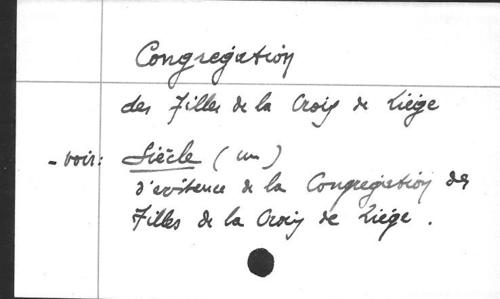 Congregation
des Filles de la Croix de Liège
- voir: Siècle (un)
d'existence de la Congregation des
Filles de la Croix de Liège.